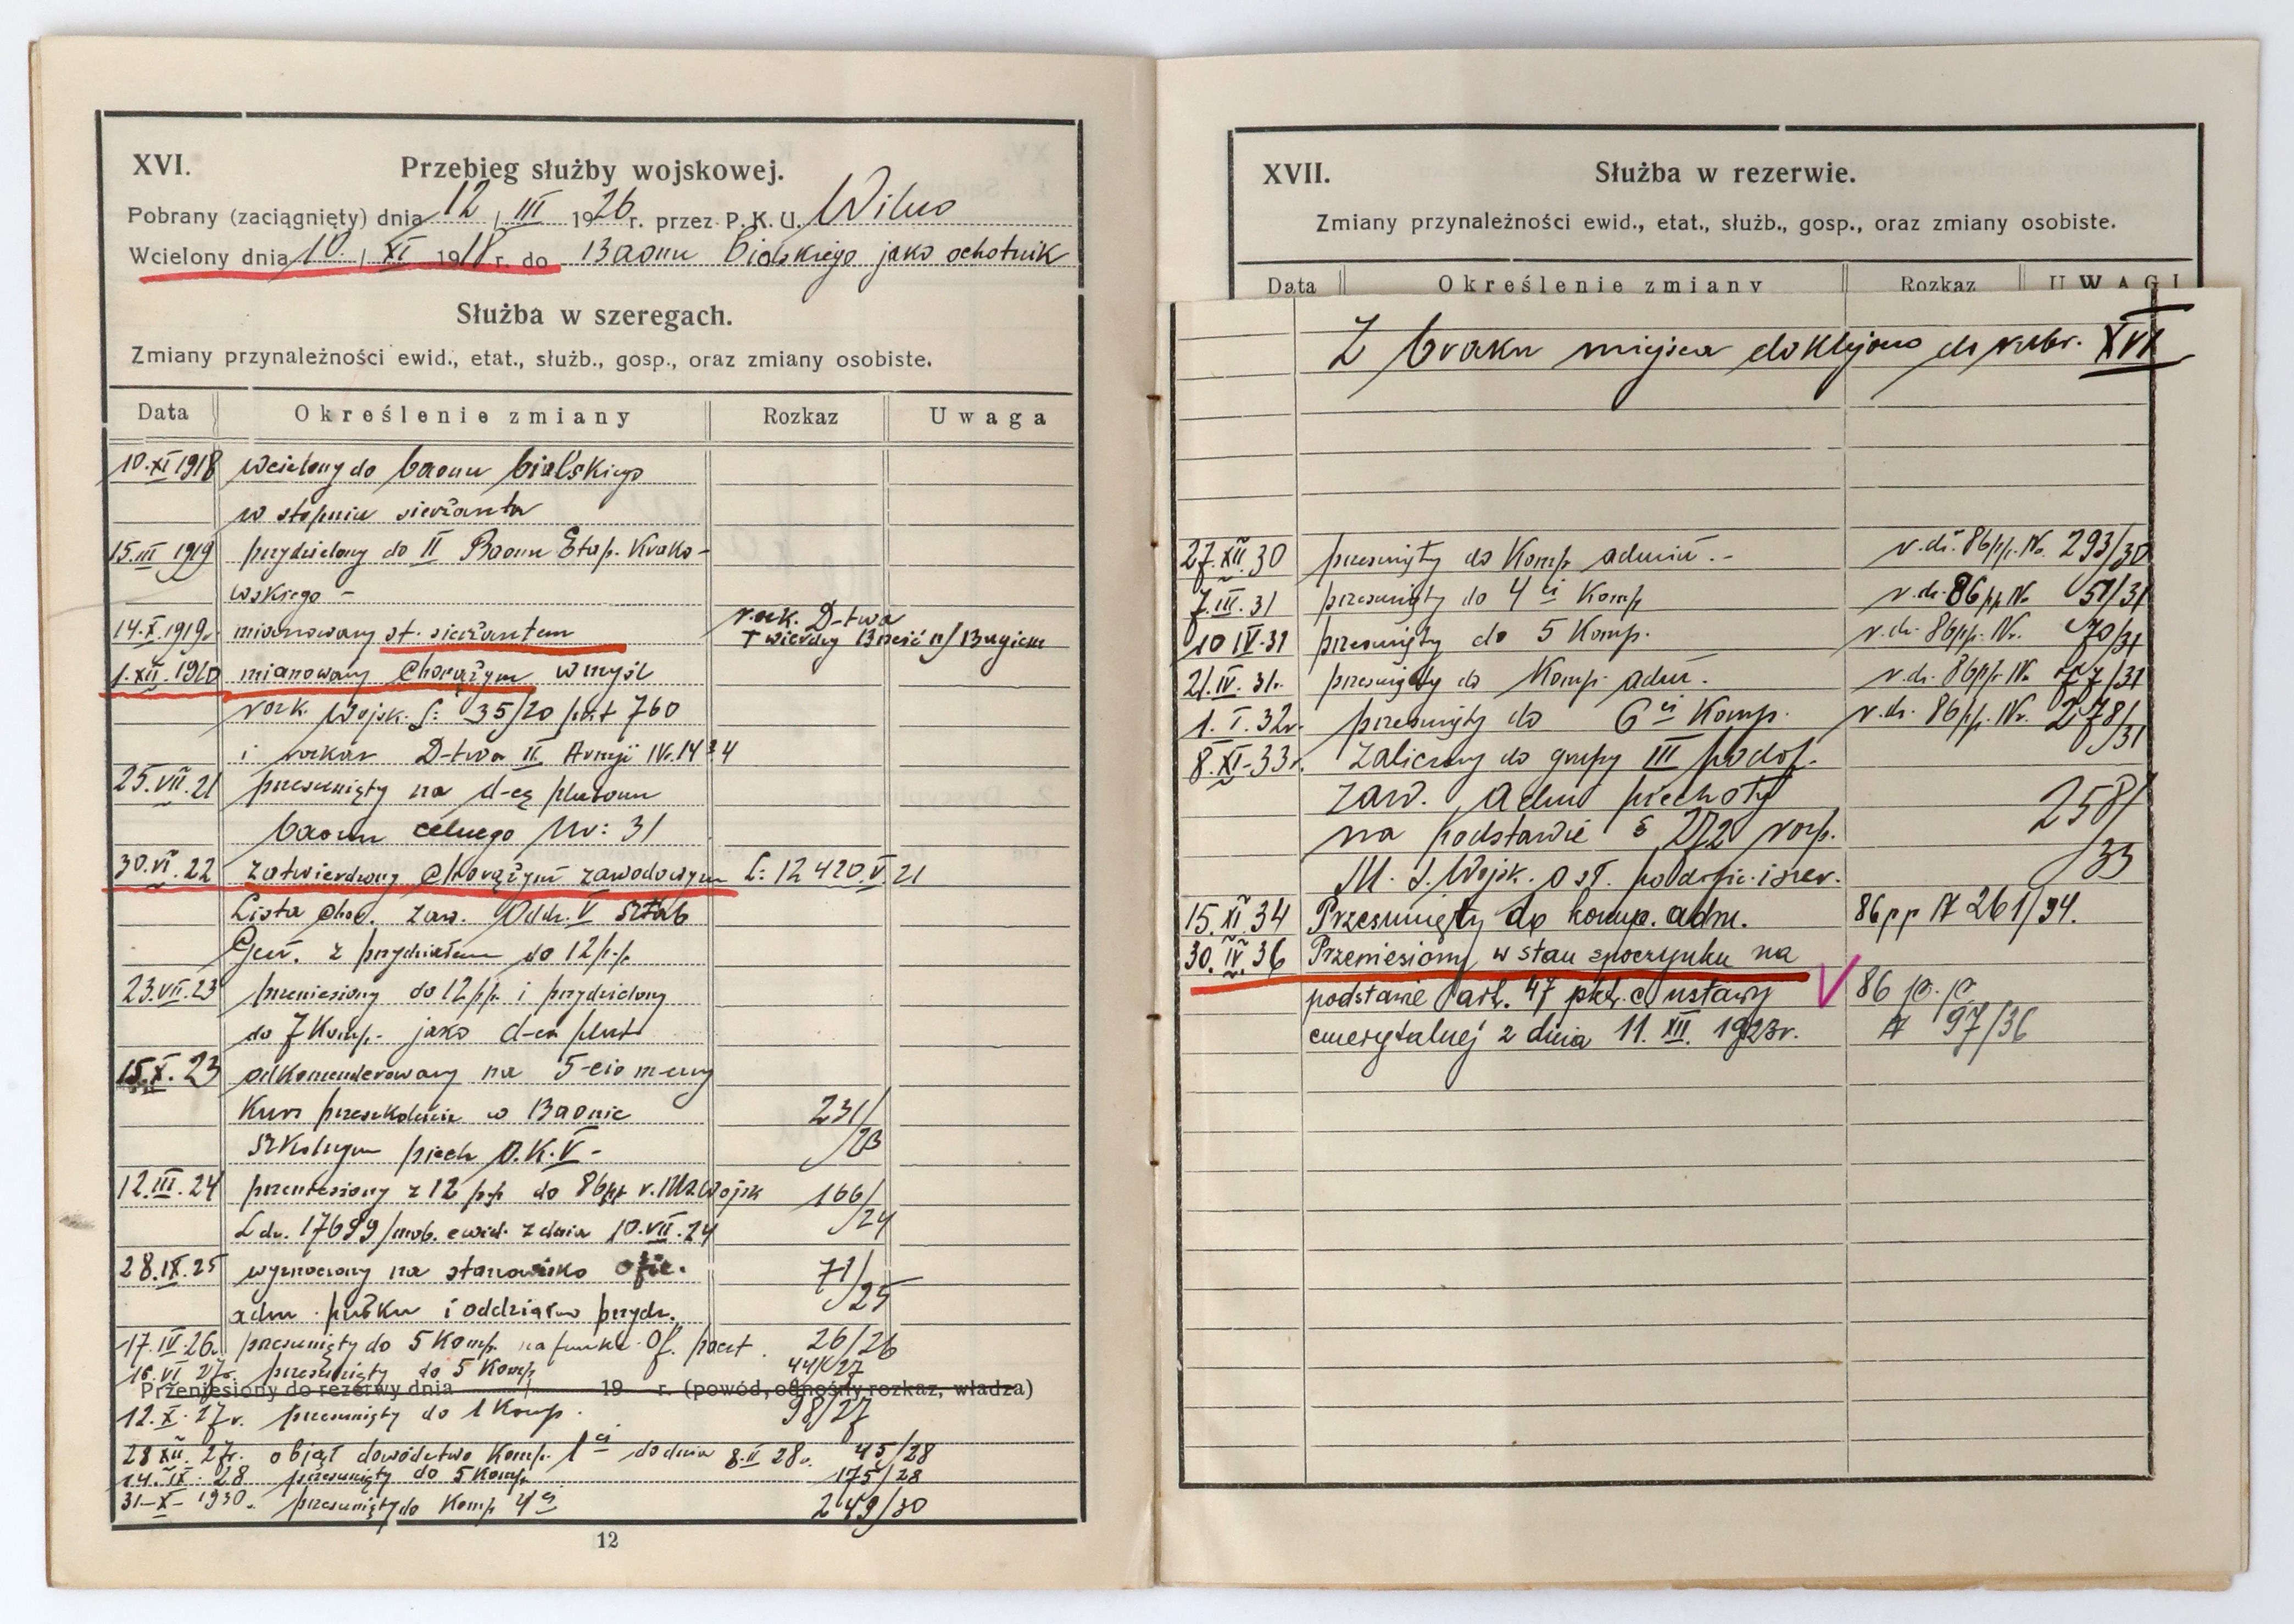 XVI. Przebieg służby wojskowej.
Pobrany (zaciągnięty) dnia 12 / III 1926 r. przez P. K. U. Wilno
Wcielony dnia 10. / XI 1918 r. do Baonu Bialskiego jako ochotnik
Służba w szeregach.
Zmiany przynależności ewid., etat., służb., gosp., oraz zmiany osobiste.
Data Określenie zmiany Rozkaz Uwaga
10.XI 1918 wcielony do baonu bialskiego
w stopniu sierżanta
15.III 1919 przydzielony do II Baonu Etap. Krako-
wskiego -
14.X.1919r. mianowany st. sierżantem rozk. D-twa
Twierdzy Brześć n/Bugiem
1.XII.1920 mianowany Chorążym w myśl
rozk. Wojsk. L: 35/20 pkt 760
i rozkaz D-twa II Armji Nr.14
25.VII.21 przesunięty na d-cę plutonu
baonu celnego Nr: 31
30.VI.22 zatwierdzony Chorążym zawodowym L: 12420.V.21
Lista Chor. zaw. Oddz. V Sztab
Gen. z przydziałem do 12 p.p.
23.VII.23 przeniesiony do 12 pp. i przydzielony
do 7 Komp. jako d-ca plut
15.X.23 odkomenderowany na 5-cio m-czny
Kurs przeszkolenia w Baonie 231/23
Szkolnym piech O.K.V -
12.III.24 przeniesiony z 12 p.p. do 86pp r. M.S.Wojsk 166/24
L dz. 17699/mob. ewid. z dnia 10.VII.24
28.IX.25 wyznaczony na stanowisko ofic. 71/25
adm. pułku i oddziałów przydz.
17.IV.26. przesunięty do 5 Komp. na funkc. Of. 26/26
16.VI 27r. przesunięty do 5 Komp 27
Przeniesiony do rezerwy dnia / 19 r. (powód, odnośny rozkaz, władza)
12.X.27r. przesunięty do 1 Komp. 98/27
28 XII. 27r. objął dowództwo Komp. 1ej do dnia 8.II 28r. 45/28
14.IX.28 przesunięty do 5 Komp. 175/28
31-X-1930. przesunięty do Komp 4ej 249/30
12
XVII. Służba w rezerwie.
Zmiany przynależności ewid., etat., służb., gosp., oraz zmiany osobiste.
Data Określenie zmiany Rozkaz UWAGI
Z braku miejsca doklejono do rubr. XVI
27.XII.30 przesunięty do Komp admin.- r.dz. 86pp. No. 293/30
7.III.31 przesunięty do 4ej Komp r.dz. 86 pp No 51/31
10 IV.31 przesunięty do 5 Komp. r.dz. 86pp. Nr. 70/31
21.IV.31. przesunięty do Komp. adm. r.dz. 86pp. No 77/31
1.I.32r. przesunięty do 6ej Komp. r.dz. 86pp. Nr. 278/31
8.XI-33r. Zaliczony do grupy III podof.
zaw. adm piechoty 258/33
na podstawie § 272 rozp.
M. S. Wojsk. o sł. podofic. i szer.
15.XI.34 Przesunięty do komp. adm. 86pp N 261/34.
30.IV.36 Przeniesiony w stan spoczynku na
podstawie art. 47 pkt. c ustawy 86 p.p.
emerytalnej z dnia 11.XII.1923r. N 97/36